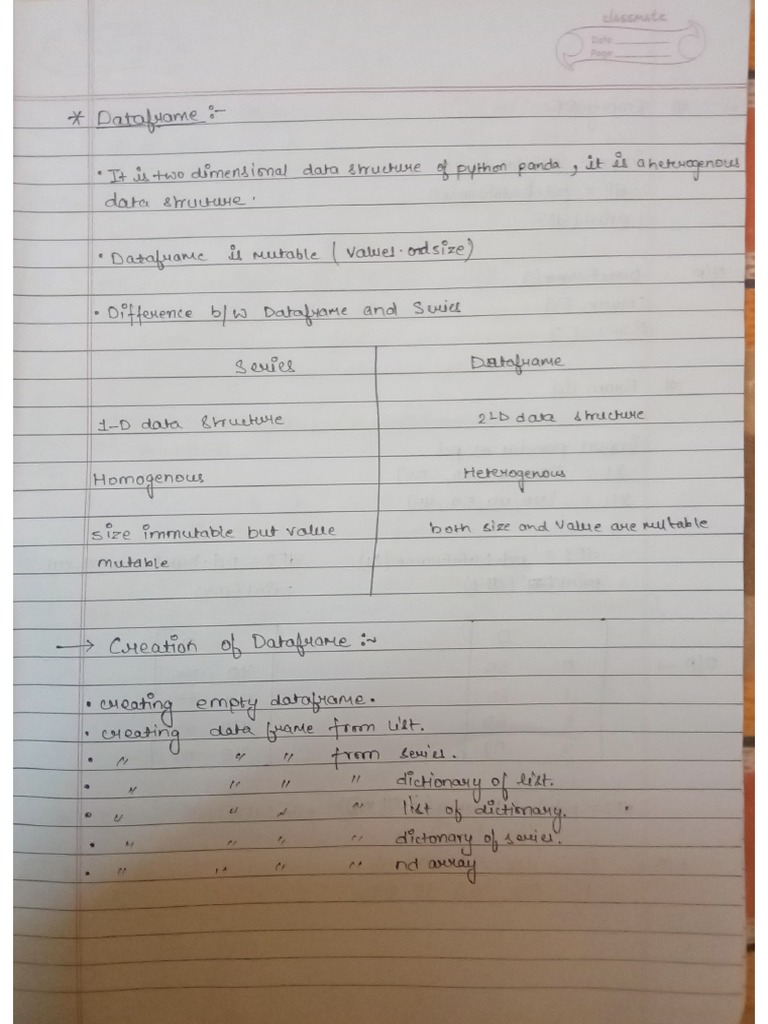 classmate
Date
Page
* Dataframe :-
• It is two dimensional data structure of python panda, it is a heterogenous
data structure.
• Dataframe is mutable (values and size)
• Difference b/w Dataframe and Series
Series Dataframe
1-D data structure 2-D data structure
Homogenous Heterogenous
size immutable but value both size and value are mutable
mutable
→ Creation of Dataframe :~
• creating empty dataframe.
• creating data frame from list.
• " " " from series.
• " " " " dictionary of list.
• " " " " list of dictionary.
• " " " " dictonary of series.
• " " " " nd array